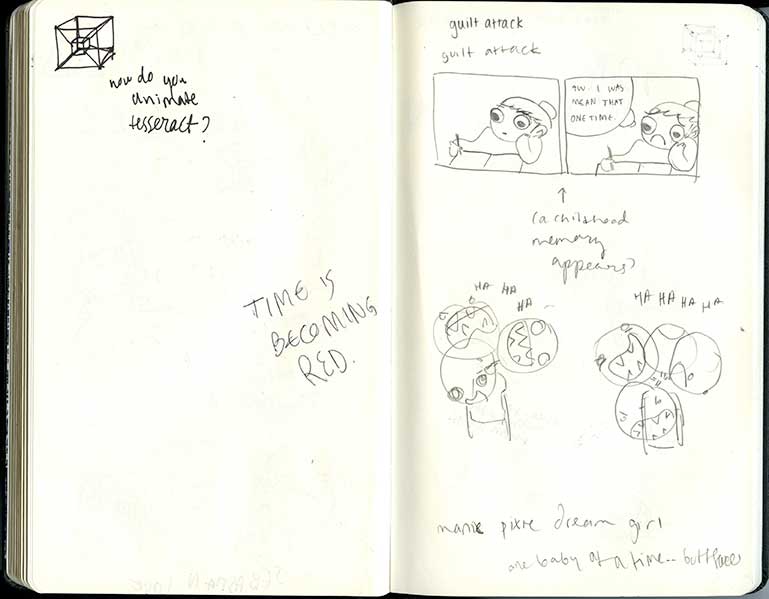 how do you
animate
tesseract?
TIME IS
BECOMING
RED.
guilt attack
guilt attack
AW. I WAS
MEAN THAT
ONE TIME.
(a childhood
memory
appears)
HA HA
HA
HA HA HA HA
manic pixie dream girl
one baby at a time.. buttface